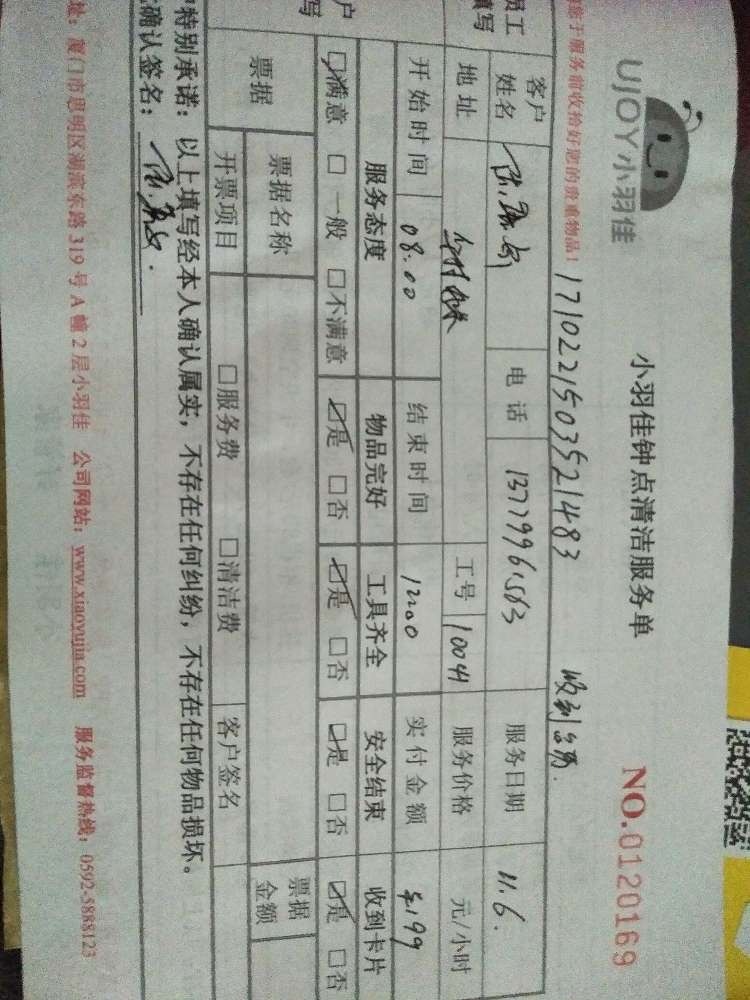 UJOY小羽佳
小羽佳钟点清洁服务单
NO.0120169
于服务前收拾好您的贵重物品!
1710221503521483
客户姓名
电话
服务日期 11.6.
员工
填写
地址
工号 10041
服务价格 元/小时
开始时间 08:00
结束时间 1200
实付金额 ¥199
户
写
服务态度 物品完好 工具齐全 安全结束 收到卡片
☑满意 □一般 □不满意 ☑是 □否 ☑是 □否 ☑是 □否 ☑是 □否
票据
票据名称
票据金额
开票项目 □服务费 □清洁费 客户签名
特别承诺:以上填写经本人确认属实,不存在任何纠纷,不存在任何物品损坏。
确认签名:
址:厦门市思明区湖滨东路319号A幢2层小羽佳 公司网站:www.xiaoyujia.com 服务监督热线:0592-5888123